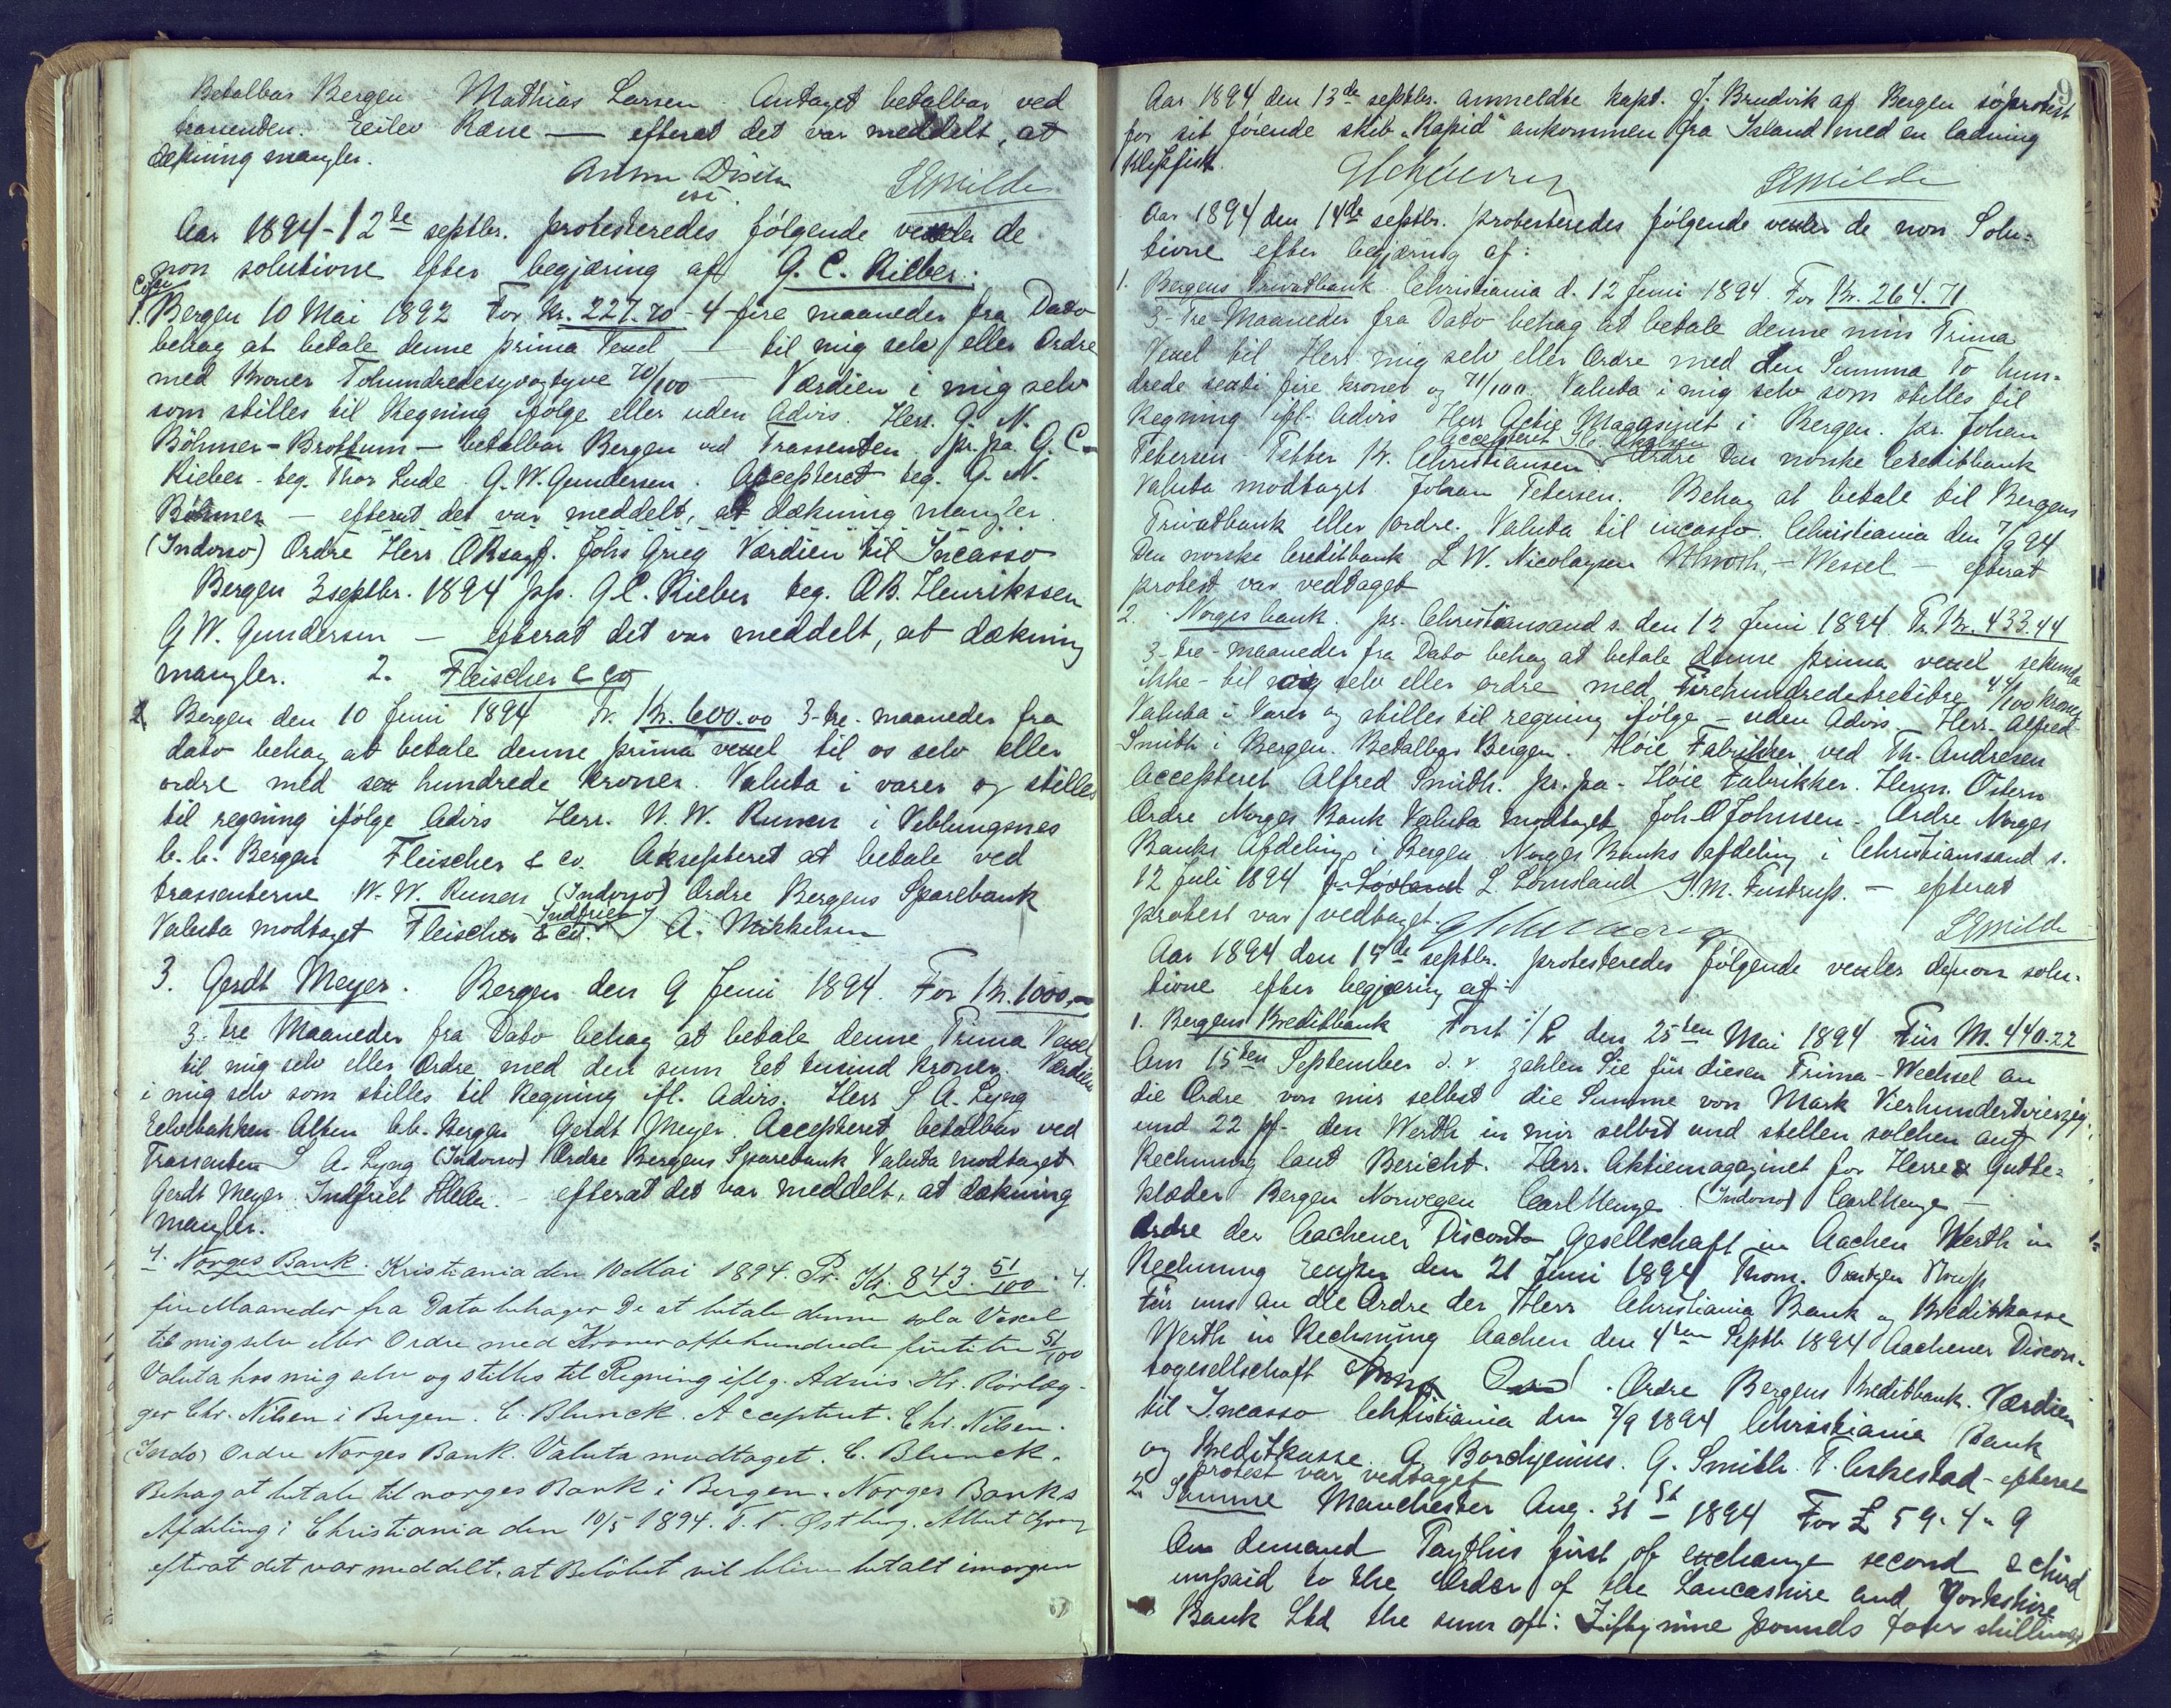 Betalbar Bergen - Mathias Larsen. Antaget betalbar ved
trassenten. Eeilev Rane — efterat det var meddelt, at
dækning mangler.
SEMilde
Aar 1894 - 12te septbr. protesteredes følgende vexler de
non solutione efter begjæring af G. C. Rieber:
1. Bergen 10 Mai 1892 For Kr. 227.70 - 4 - fire maaneder fra Dato
behag at betale denne prima Vexel — til mig selv eller Ordre
med Kroner Tohundredesyvogtyve 70/100 — Værdien i mig selv
som stilles til Regning ifølge eller uden Advis. Herr. G. N.
Böhmer - Brottum - betalbar Bergen ved Trassenten, pr. pa. G. C.
Rieber - teg. Thor Lude. G. W. Gundersen. Accepteret teg. G. N.
Böhmer — efterat det var meddelt, at dækning mangler.
(Indosso) Ordre Herr ORsagf. Johs Grieg Værdien til Incasso
Bergen 3 septbr. 1894 pp. G. C. Rieber teg. O. B. Henrikssen
G W. Gundersen — efterat det var meddelt, at dækning
mangler. 2. Fleischer & Co
Bergen den 10 Juni 1894 Kr. 600.00 3 - tre - maaneder fra
dato behag at betale denne prima vexel til os selv eller
ordre med sex hundrede kroner. Valuta i varer og stilles
til regning ifølge Advis Herr. N. W. Runen i Veblungsnes
b. b. Bergen Fleischer & Co. Aksepteret at betale ved
trassenterne N. W. Runen (Indosso) Ordre Bergens Sparebank
Valuta modtaget Fleischer & Co. Indfriet A. Mikkelsen
3. Gerdt Meyer. Bergen den 9 Juni 1894. For Kr. 1000,-
3 - tre Maaneder fra Dato behag at betale denne Prima Vexel
til mig selv eller Ordre med den sum Eet tusind kroner. Værdien
i mig selv som stilles til Regning ifl. Advis. Herr S A. Lyng
Eelvebakken Alten b.b. Bergen Gerdt Meyer. Accepteret betalbar ved
Trassenten S A. Lyng (Indosso) Ordre Bergens Sparebank Valuta modtaget
Gerdt Meyer. Indfriet - efterat det var meddelt, at dækning
mangler.
4. Norges Bank. Kristiania den 10 Mai 1894. Pr. Kr. 843. 51/100. 4.
fire Maaneder fra Dato behager De at betale denne sola Vexel
til mig selv eller Ordre med Kroner ottehundrede firtitre 51/100
Valuta hos mig selv og stilles til Regning iflg. Advis. Hr. Rørlæg-
ger Chr. Nilsen i Bergen. C. Blunck. Accepteret. Chr. Nilsen.
(Indo) Ordre Norges Bank. Valuta modtaget. C. Blunck.
Behag at betale til norges Bank i Bergen. Norges Banks
Afdeling i Christiania den 10/5 1894. Østberg. Albert
efterat det var meddelt, at Beløbet vil blive betalt imorgen
9
Aar 1894 den 13de septbr. anmeldte kapt. J. Brudvik af Bergen søprotest
for sit førende skib "Rapid" ankommen fra Island med en ladning
Klipfisk.
SEMilde
Aar 1894 den 14de septbr. protesteredes følgende vexler de non Solu-
tione efter begjæring af:
1. Bergens Privatbank. Christiania d. 12 Juni 1894 For Kr. 264.71
3 - Tre - Maaneder fra Dato behag at betale denne min Prima
Vexel til Herr mig selv eller Ordre med den Summa To hun-
drede sexti fire kroner og 71/100. Valuta i mig selv som stilles til
Regning ifl. Advis Herr Actie Magasinet i Bergen. pr. Johan
Petersen - Petter K. Christiansen. Ordre Den norske Creditbank
Valuta modtaget. Johan Petersen. Behag at betale til Bergens
Privatbank eller ordre. Valuta til incasso. Christiania den 7/9 94
Den norske Creditbank L W. Nicolaysen - Wessel - efterat
protest var vedtaget
2. Norges bank. pr. Christiansand s. den 12 Juni 1894 Pr. Kr. 433.44
3 - tre - maaneder fra Dato behag at betale denne prima vexel sekunda
ikke - til mig selv eller ordre med Firehundredetretitre 44/100 kroner
Valuta i Varer og stilles til regning ifølge - uden Advis - Herr. Alfred
Smith i Bergen. Betalbar Bergen. Høie Fabrikker ved Th. Andresen
Accepteret Alfred Smith. pr. pa. Høie Fabrikker. Herm. Østern
Ordre Norges Bank Valuta modtaget Joh. O Johnsen - Ordre Norges
Banks Afdeling i Bergen. Norges Banks afdeling i Christiansand s.
12 Juli 1894 L Lømsland S. M. Fustrup. — efterat
protest var vedtaget.
SEMilde
Aar 1894 den 15de septbr. protesteredes følgende vexler de non solu-
tione efter begjæring af:
1. Bergens Kreditbank Forst i/L den 25ten Mai 1894 Für M. 440.22
Am 15ten September d. J. zahlen Sie für diesen Prima - Wechsel an
die Ordre von mir selbst die Summe von Mark Vierhundertvierzig
und 22 pf. den Werth in mir selbst und stellen solchen auf
Rechnung laut Bericht. Herr. Aktiemagazinet for Herre & Gutte-
klæder Bergen Norwegen Carl Menge (Indosso) Carl Menge —
Ordre der Aachener Disconto Gesellschaft in Aachen Werth in
Rechnung Eupen den 21 Juni 1894 Thom.
Für uns an die Ordre der Herr Christiania Bank og Kreditkasse
Werth in Rechnung Aachen den 4ten Septb 1894 Aachener Discon-
togesellschaft. Ordre Bergens Kreditbank. Værdien
til Incasso Christiania den 7/9 1894 Christiania Bank
og Kreditkasse. A. Borchgrevink. G. Smith. T. Eskestad - efterat
protest var vedtaget
2. Samme Manchester Aug. 31st 1894 For £ 59.4.9
On demand Pay this first of exchange second & third
unpaid to the Order of the Lancashire and Yorkshire
Bank Ltd the sum of: Fifty nine pounds four shillings